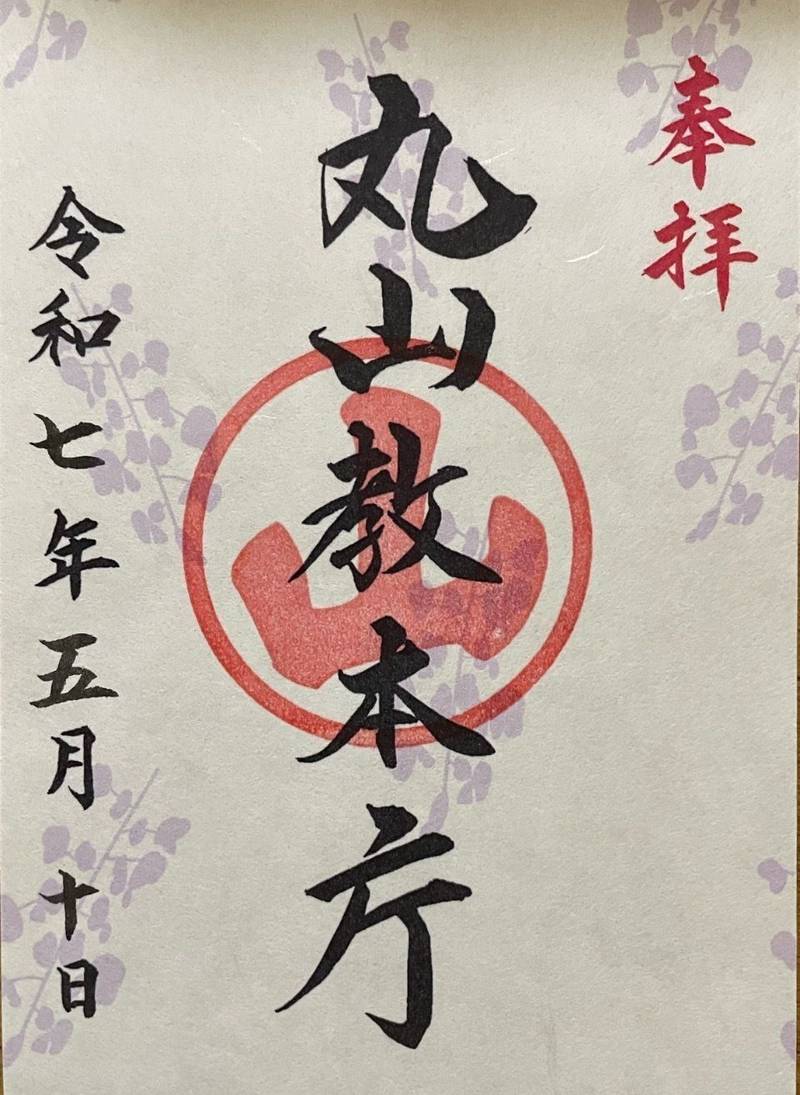 奉拝
丸山教本庁
山
令和七年五月十日